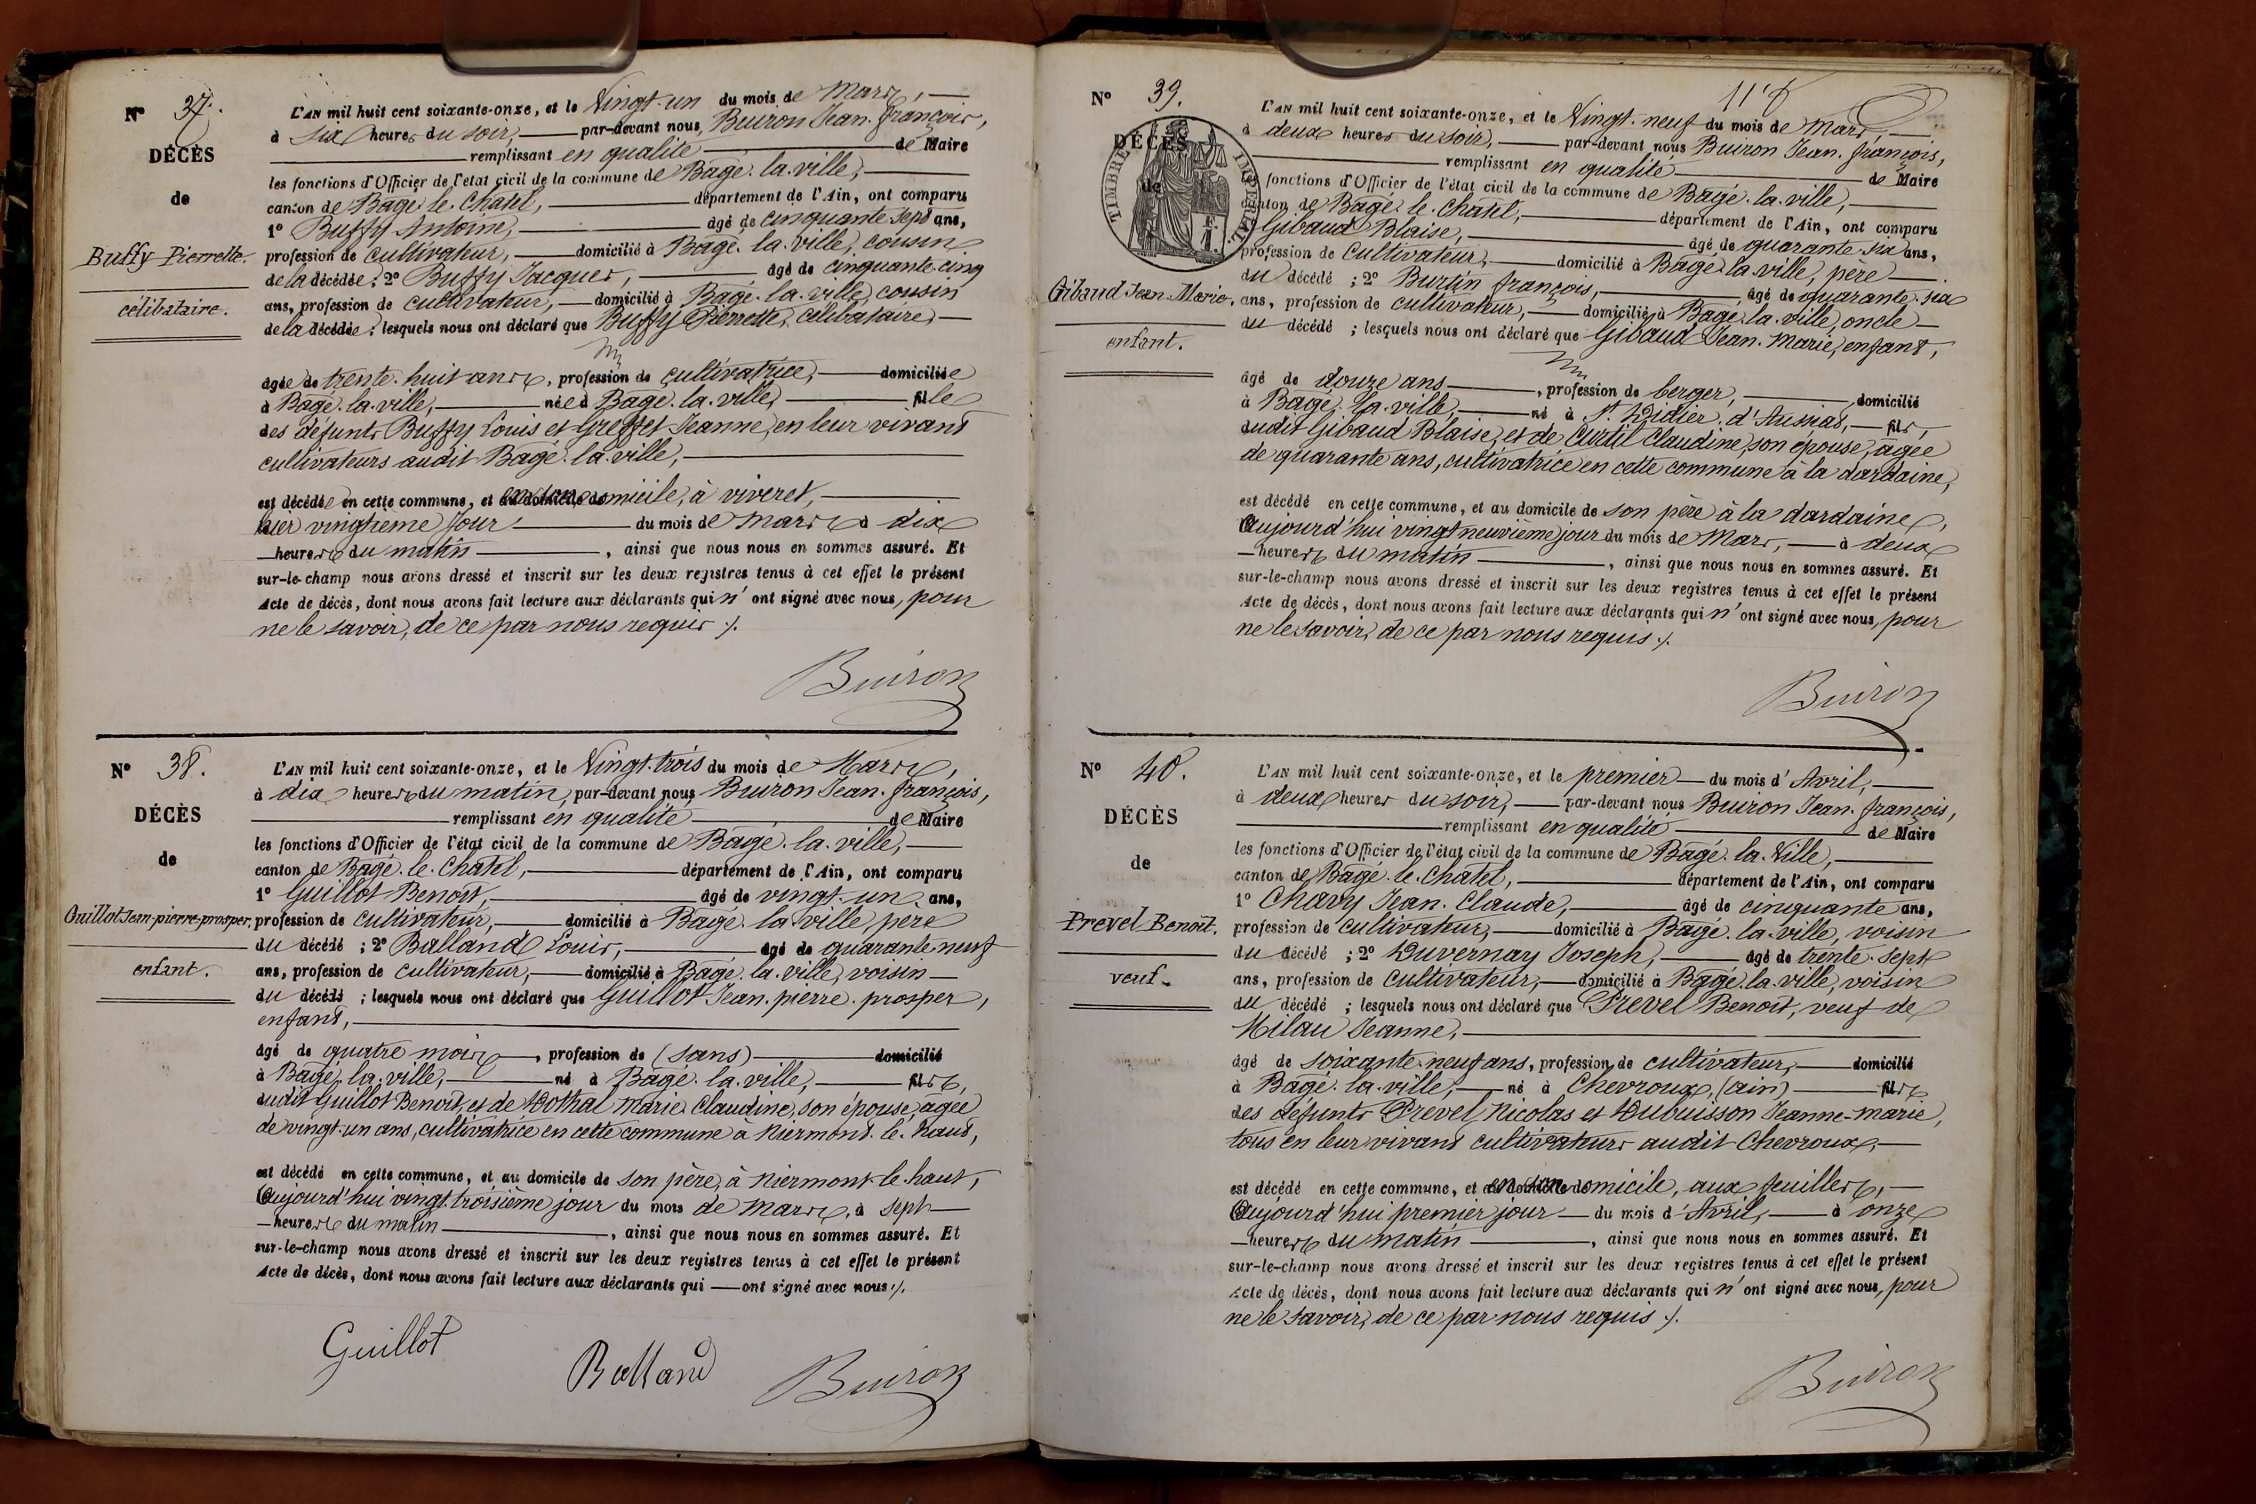 N° 37.
DÉCÈS
de
Buffy Pierrette.
célibataire.
L'AN mil huit cent soixante-onze, et le Vingt-un du mois de Mars,
à six heures du soir, par-devant nous, Buiron Jean-françois,
remplissant en qualité de Maire
les fonctions d'Officier de l'état civil de la commune de Bagé-la-ville,
canton de Bagé-le-Chatel, département de l'Ain, ont comparu
1° Buffy Antoine, agé de cinquante-sept ans,
profession de cultivateur, domicilié à Bagé-la-ville, cousin
de la décédée ; 2° Buffy Jacques, âgé de cinquante-cinq
ans, profession de cultivateur, domicilié à Bagé-la-ville, cousin
de la décédée ; lesquels nous ont déclaré que Buffy Pierrette, célibataire,
agée de trente-huit ans, profession de cultivatrice, domiciliée
à Bagé-la-ville, née à Bagé-la-ville, fille
des défunts Buffy Louis et Greffet Jeanne, en leur vivant
cultivateurs audit Bagé-la-ville,
est décédée en cette commune, et en son domicile, à viveret,
hier vingtième jour du mois de Mars à dix
heures du matin, ainsi que nous nous en sommes assuré. Et
sur-le-champ nous avons dressé et inscrit sur les deux registres tenus à cet effet le présent
Acte de décès, dont nous avons fait lecture aux déclarants qui n'ont signé avec nous, pour
ne le savoir, de ce par nous requis ./.
Buiron
N° 38.
DÉCÈS
de
Guillot Jean-pierre-prosper.
enfant.
L'AN mil huit cent soixante-onze, et le Vingt-trois du mois de Mars,
à dix heures du matin, par-devant nous Buiron Jean-françois,
remplissant en qualité de Maire
les fonctions d'Officier de l'état civil de la commune de Bagé-la-ville,
canton de Bagé-le-Chatel, département de l'Ain, ont comparu
1° Guillot Benoît, agé de vingt-un ans,
profession de cultivateur, domicilié à Bagé-la-ville, père
du décédé ; 2° Balland Louis, agé de quarante-neuf
ans, profession de cultivateur, domicilié à Bagé-la-ville, voisin
du décédé ; lesquels nous ont déclaré que Guillot Jean-pierre-prosper,
enfant,
âgé de quatre mois, profession de (sans) domicilié
à Bagé-la-ville, né à Bagé-la-ville, fils
dudit Guillot Benoît, et de Mothal Marie Claudine, son épouse, agée
de vingt-un ans, cultivatrice en cette commune à Niermont-le-haut,
est décédé en cette commune, et au domicile de son père, à Niermont-le-haut,
Aujourd'hui vingt-troisième jour du mois de Mars, à sept
heures du matin, ainsi que nous nous en sommes assuré. Et
sur-le-champ nous avons dressé et inscrit sur les deux registres tenus à cet effet le présent
Acte de décès, dont nous avons fait lecture aux déclarants qui ont signé avec nous ./.
Guillot Balland Buiron
N° 39.
DÉCÈS
de
TIMBRE IMPÉRIAL
Gibaud Jean Marie.
enfant.
L'AN mil huit cent soixante-onze, et le Vingt-neuf du mois de Mars,
à deux heures du soir, par-devant nous Buiron Jean-françois,
remplissant en qualité de Maire
fonctions d'Officier de l'état civil de la commune de Bagé-la-ville,
canton de Bagé-le-Chatel, département de l'Ain, ont comparu
Gibaud Blaise, âgé de quarante-six ans,
profession de cultivateur, domicilié à Bagé-la-ville, père
du décédé ; 2° Burtin françois, âgé de quarante-six
ans, profession de cultivateur, domicilié à Bagé-la-ville, oncle
du décédé ; lesquels nous ont déclaré que Gibaud Jean-Marie, enfant,
âgé de douze ans, profession de berger, domicilié
à Bagé-la-ville, né à St Didier-d'Aussiat, fils
dudit Gibaud Blaise, et de Curtil Claudine, son épouse, âgée
de quarante ans, cultivatrice en cette commune à la dardaine,
est décédé en cette commune, et au domicile de son père à la dardaine,
Aujourd'hui vingt-neuvième jour du mois de Mars, à deux
heures du matin, ainsi que nous nous en sommes assuré. Et
sur-le-champ nous avons dressé et inscrit sur les deux registres tenus à cet effet le présent
Acte de décès, dont nous avons fait lecture aux déclarants qui n'ont signé avec nous, pour
ne le savoir, de ce par nous requis ./.
Buiron
N° 40.
DÉCÈS
de
Prevel Benoît.
veuf.
L'AN mil huit cent soixante-onze, et le premier du mois d'Avril,
à deux heures du soir, par-devant nous Buiron Jean-françois,
remplissant en qualité de Maire
les fonctions d'Officier de l'état civil de la commune de Bagé-la-Ville,
canton de Bagé-le-Chatel, département de l'Ain, ont comparu
1° Chavy Jean-Claude, âgé de cinquante ans,
profession de cultivateur, domicilié à Bagé-la-ville, voisin
du décédé ; 2° Duvernay Joseph, âgé de trente-sept
ans, profession de cultivateur, domicilié à Bagé-la-ville, voisin
du décédé ; lesquels nous ont déclaré que Prevel Benoît, veuf de
Milau Jeanne,
âgé de soixante-neuf ans, profession de cultivateur, domicilié
à Bagé-la-ville, né à Chevroux, (ain) fils
des défunts Prevel Nicolas et Dubuisson Jeanne-Marie,
tous en leur vivant cultivateurs audit Chevroux,
est décédé en cette commune, et en son domicile, aux feuilles,
Aujourd'hui premier jour du mois d'Avril, à onze
heures du matin, ainsi que nous nous en sommes assuré. Et
sur-le-champ nous avons dressé et inscrit sur les deux registres tenus à cet effet le présent
Acte de décès, dont nous avons fait lecture aux déclarants qui n'ont signé avec nous, pour
ne le savoir, de ce par nous requis ./.
Buiron